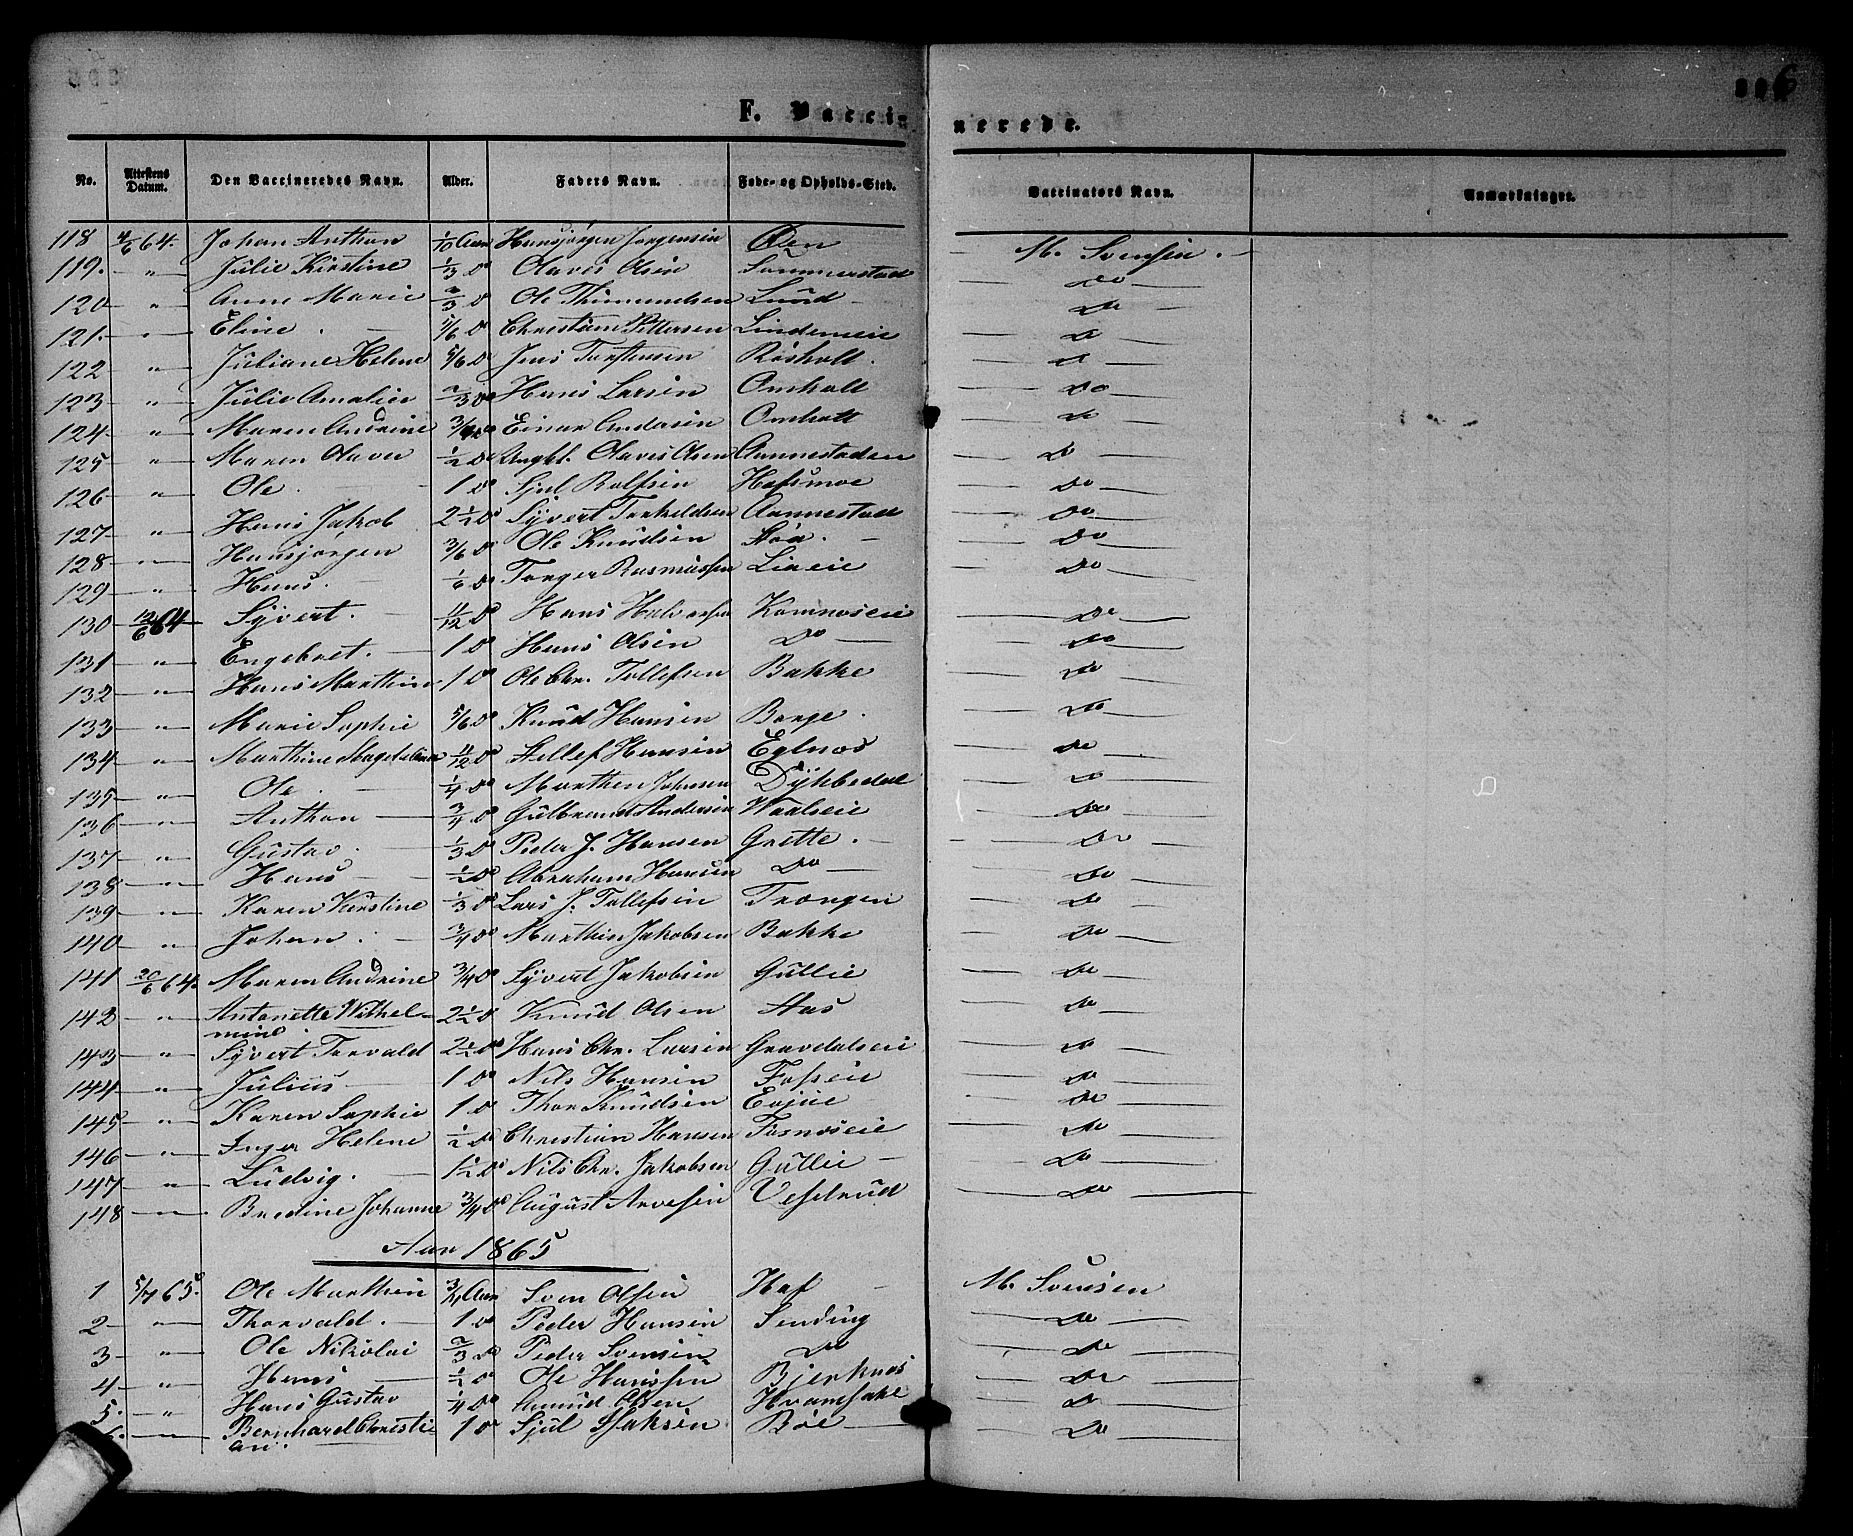 6
F. Vaccinerede.
No. Attestens Datum. Den Vaccineredes Navn. Alder. Faders Navn. Føde- og Opholds-Sted. Vaccinators Navn. Anmærkninger.
118 4/6 64. Johan Anthon 1/10 Aar Hansjørgen Jørgensen Øen M. Svensen.
119. " Julie Kirstine 1/3 Do Olaves Olsen Sommerstad Do
120 " Anne Marie 2/3 Do Ole Thimundsen Lund Do
121. " Eline. 5/6 Do Christian Pettersen Lindemeie Do
122 " Juliane Helene 5/6 Do Jens Torstensen Røsholt. Do
123 " Julie Amalie 2/3 Do Hans Larsen Omholt Do
124 " Maren Andrine Do Einar Andersen Omholt Do
125 " Maren Olava 1/2 Do Ungkl. Olaves Olsen Aannestaden Do
126 " Ole. 1 Do Sjul Rolfsen Hafsmoe Do
127 " Hans Jakob 2 1/2 Do Syvert Torkeldsen Aannestad Do
128 " Hansjørgen 3/6 Do Ole Knudsen Do
129 " Hans. 1/6 Do Torger Rasmussen Lieeie Do
130 12/6 64 Syvert. 11/12 Do Hans Halvorsen Komnæseie Do
131 " Engebret. 1 Do Hans Olsen Do Do
132 " Hans Marthin 1 Do Ole Chr. Tollefsen Bakke Do
133 " Marie Sophie 5/6 Do Knud Hansen Berge. Do
134 " Marthine Magdalena 11/12 Do Fellef Hansen Eglnæs Do
135 " Ole. 1/4 Do Marthin Johnsen Dykbedal Do
136 " Anthon 3/4 Do Gulbrand Andersen Waalseie Do
137 " Gustav. 1/3 Do Peder J. Hansen Grette. Do
138 " Hans 1/2 Do Abraham Hansen Do Do
139 " Karen Kirstine 1/3 Do Lars J. Tollefsen Trongen Do
140 " Johan. 3/4 Do Marthin Jakobsen Bakke Do
141 20/6 64. Maren Andrine 3/4 Do Syvert Jakobsen Gullie Do
142 " Antonette Wilhel- 2 1/2 Do Knud Olsen Aas Do
mine
143 " Syvert Torvald 2 1/2 Do Hans Chr. Larsen Gravdalseie Do
144 " Julius 1 Do Nils Hansen Fosseie Do
145 " Karen Sophie 1 Do Thor Knudsen Evjue Do
146 " Inger Helene 1/2 Do Christian Hansen Tosnæseie Do
147 " Ludvig. 1 1/2 Do Nils Chr. Jakobsen Gullie Do
148 " Bredine Johanne 3/4 Do August Arvesen Veselrud Do
Aar 1865
1 5/7 65. Ole Marthin 3/4 Aar Sven Olsen Haf M. Svensen
2 " Thorvald. 1 Do Peder Hansen Sending Do
3 " Ole Nikolai 2/3 Do Peder Svensen Do Do
4 " Hans 1/2 Do Ole Hanssen Bjerknæs Do
5. " Hans Gustav 1/4 Do Amund Olsen Do
6. " Bernhard Christi- 1 Do Sjul Isaksen Bøe Do
an.